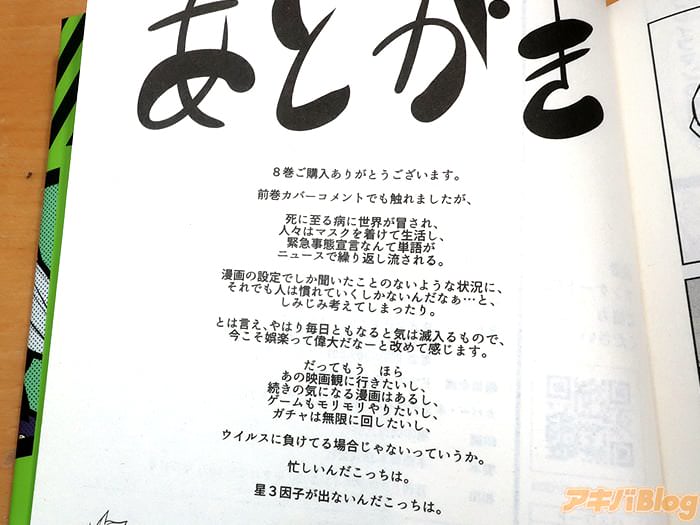 あとがき
８巻ご購入ありがとうございます。
前巻カバーコメントでも触れましたが、
死に至る病に世界が冒され、
人々はマスクを着けて生活し、
緊急事態宣言なんて単語が
ニュースで繰り返し流される。
漫画の設定でしか聞いたことのないような状況に、
それでも人は慣れていくしかないんだなぁ…と、
しみじみ考えてしまったり。
とは言え、やはり毎日ともなると気は滅入るもので、
今こそ娯楽って偉大だなーと改めて感じます。
だってもう　ほら
あの映画観に行きたいし、
続きの気になる漫画はあるし、
ゲームもモリモリやりたいし、
ガチャは無限に回したいし、
ウイルスに負けてる場合じゃないっていうか。
忙しいんだこっちは。
星３因子が出ないんだこっちは。
アキバBlog